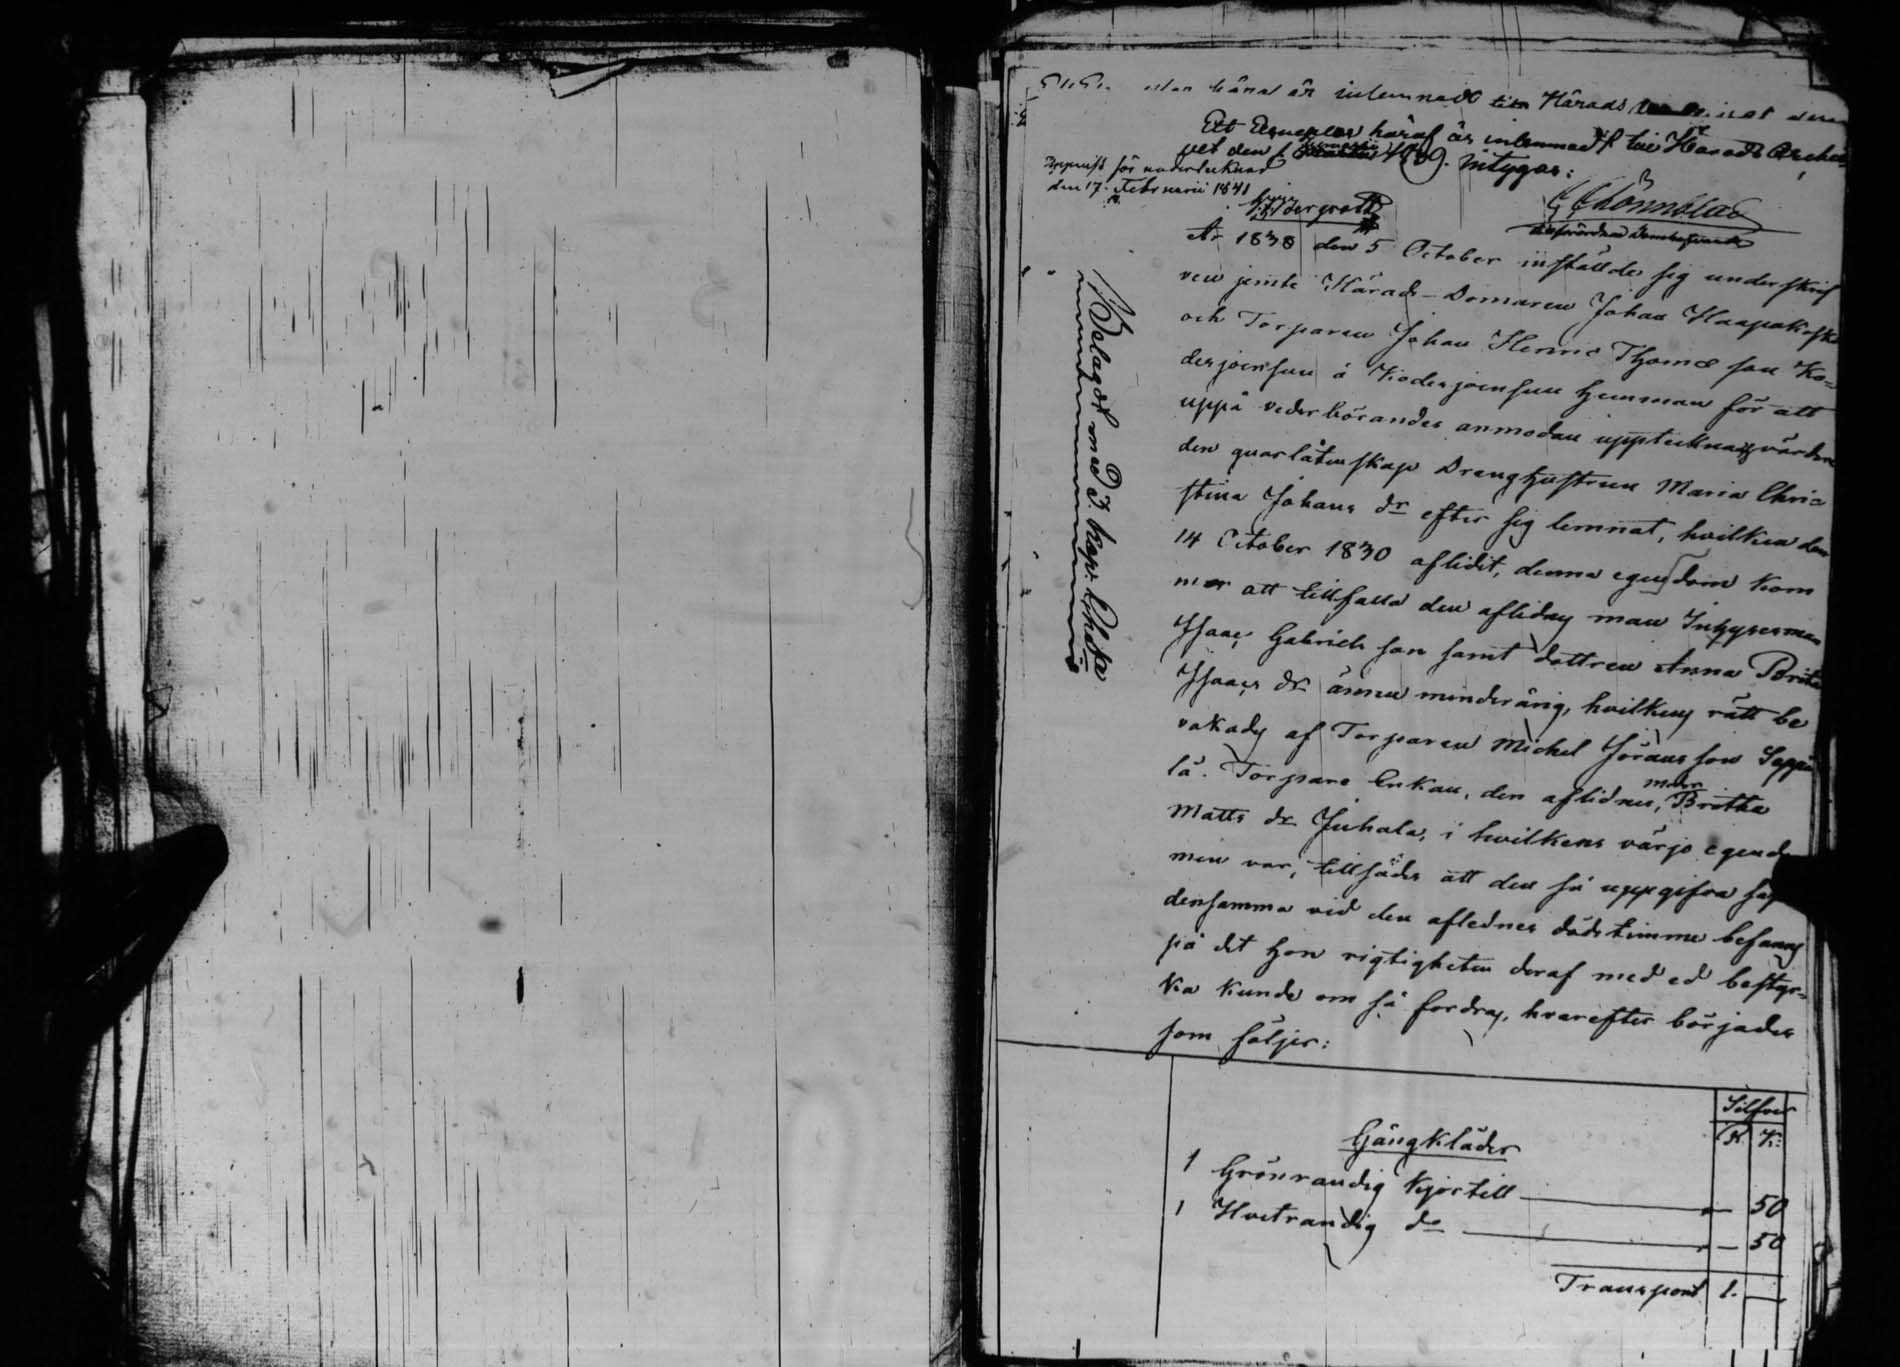 utan känd är inlemnadt till Härads
Ett Exemplar häraf är inlemnadt till Härads Archi-
vet den 1 1839. intygar:
Uppvist för undertecknad
den 17 Februarii 1841
År 1838 den 5 October instälde sig underskrif
ven jemte Härads-Domaren Johan Haapakoski
och Torparen Johan Henric Thomæ son Ko-
desjoensuu å Kodesjoensuu hemman för att
uppå vederbörandes anmodan uppteckna & värdera
den qvarlåtenskap Drenghustrun Maria Chri-
stina Johans dr efter sig lemnat, hvilken den
14 October 1830 aflidit, denna egendom kom
mer att tillfalla den aflidnes man Inhysesman
Isaac Gabriels son samt dottren Anna Brita
Isaacs dr ännu minderårig, hvilkens rätt be
vakades af Torparen Michel Jöransson Seppä
lä. Torpare Enkan, den aflidnes moder Britha
Matts dr Juhala, i hvilkens värjo egendo
men var, tillsades att den så uppgifva som
densamma vid den aflednes dödstimme befanns
på det hon rigtigheten deraf med ed bestyr-
ka kunde om så fordras, hvarefter började
som följer:
Belagdt med 3. kop. Chsa
Silfver
R. K:
Gångkläder
1 Grönrandig Kjortell — — 50
1 Hvitrandig do — — 50
Transport 1. —